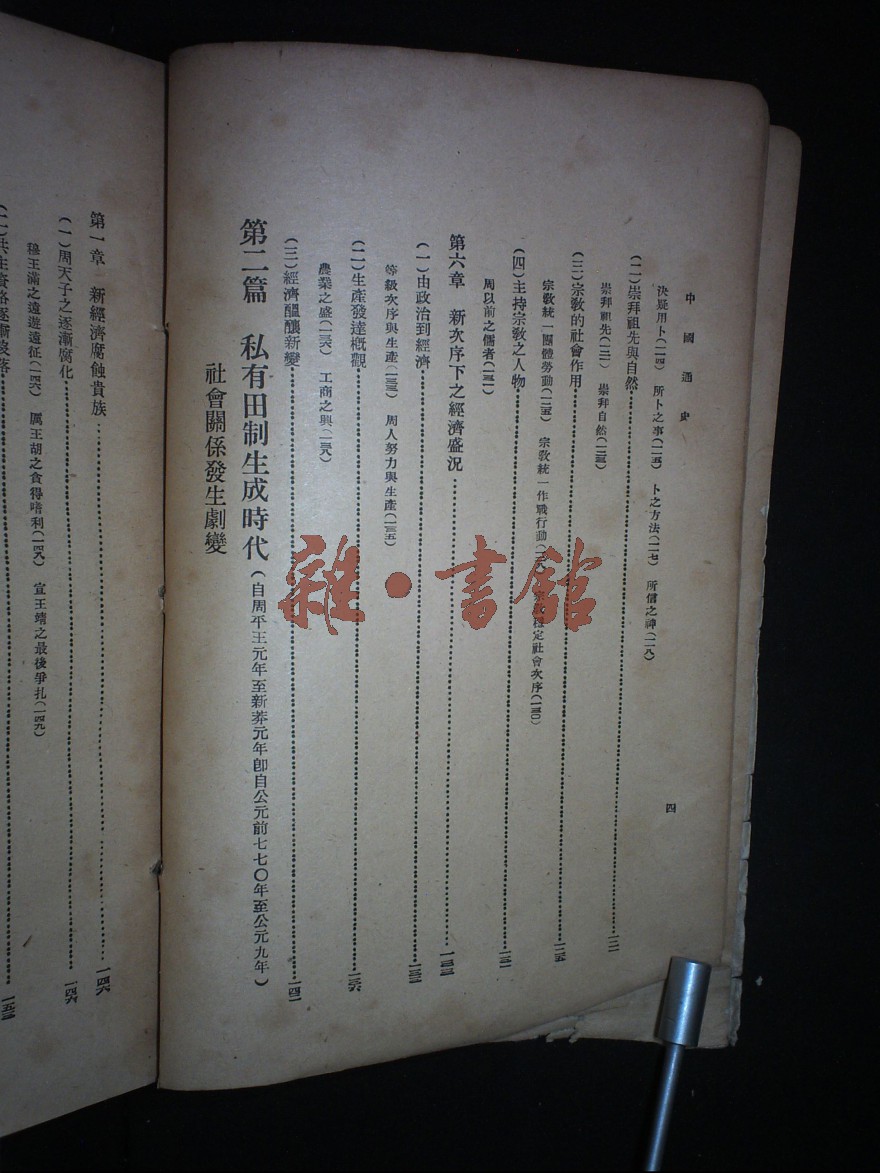 中國通史
決疑用卜(一一四) 所卜之事(一一五) 卜之方法(一一七) 所信之神(一一八)
(二)崇拜祖先與自然
崇拜祖先(一二一) 崇拜自然(一二三)
(三)宗教的社會作用
宗教統一團體勞動(一二五) 宗教統一作戰行動(一二八) 宗教穩定社會次序(一三〇)
(四)主持宗教之人物
周以前之儒者(一三一)
第六章 新次序下之經濟盛況
(一)由政治到經濟
等級次序與生產(一三三) 周人努力與生產(一三五)
(二)生產發達概觀 一三六
農業之盛(一三六) 工商之興(一三八)
(三)經濟醞釀新變
第二篇 私有田制生成時代(自周平王元年至新莽元年卽自公元前七七〇年至公元九年)
社會關係發生劇變
四
第一章 新經濟腐蝕貴族 一四六
(一)周天子之逐漸腐化 一四六
穆王滿之遠遊遠征(一四六) 厲王胡之貪得嗜利(一四八) 宣王靖之最後爭扎(一四九)
雜·書館